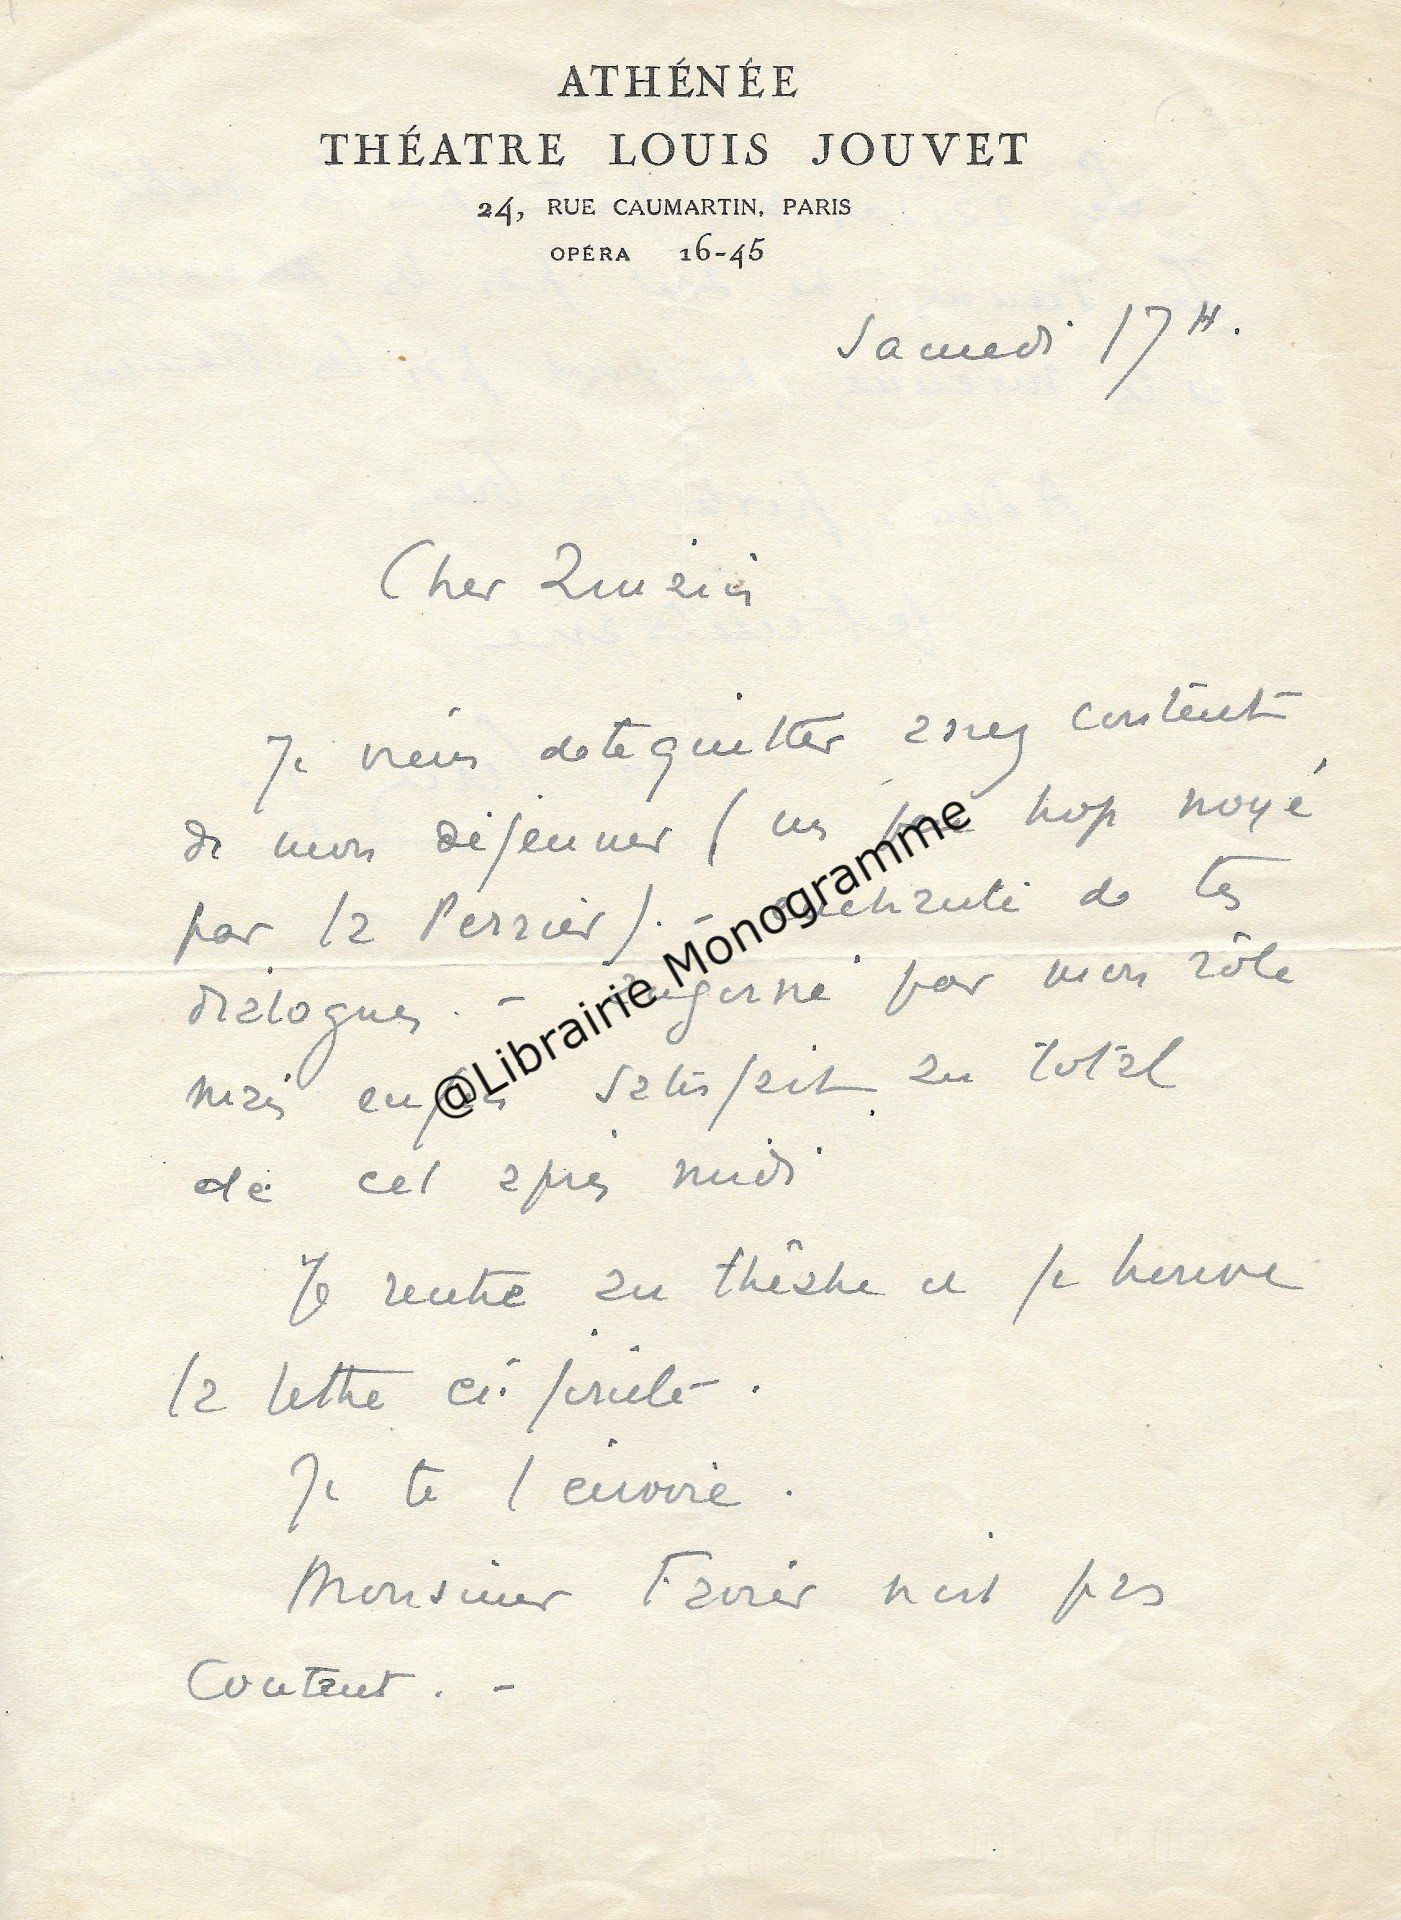 ATHÉNÉE
THÉATRE LOUIS JOUVET
24, RUE CAUMARTIN, PARIS
OPÉRA 16-45
Samedi 17 H.
Cher
Je viens de te quitter assez content
de mon déjeuner (un peu trop noyé
par la Perrier). - enchanté de tes
dialogues. - par mon rôle
mais enfin satisfait au total
de cet après midi
Je rentre au théâtre et je trouve
la lettre ci-jointe.
Je te l envoie.
Monsieur n'est pas
Content. -
@Librairie Monogramme